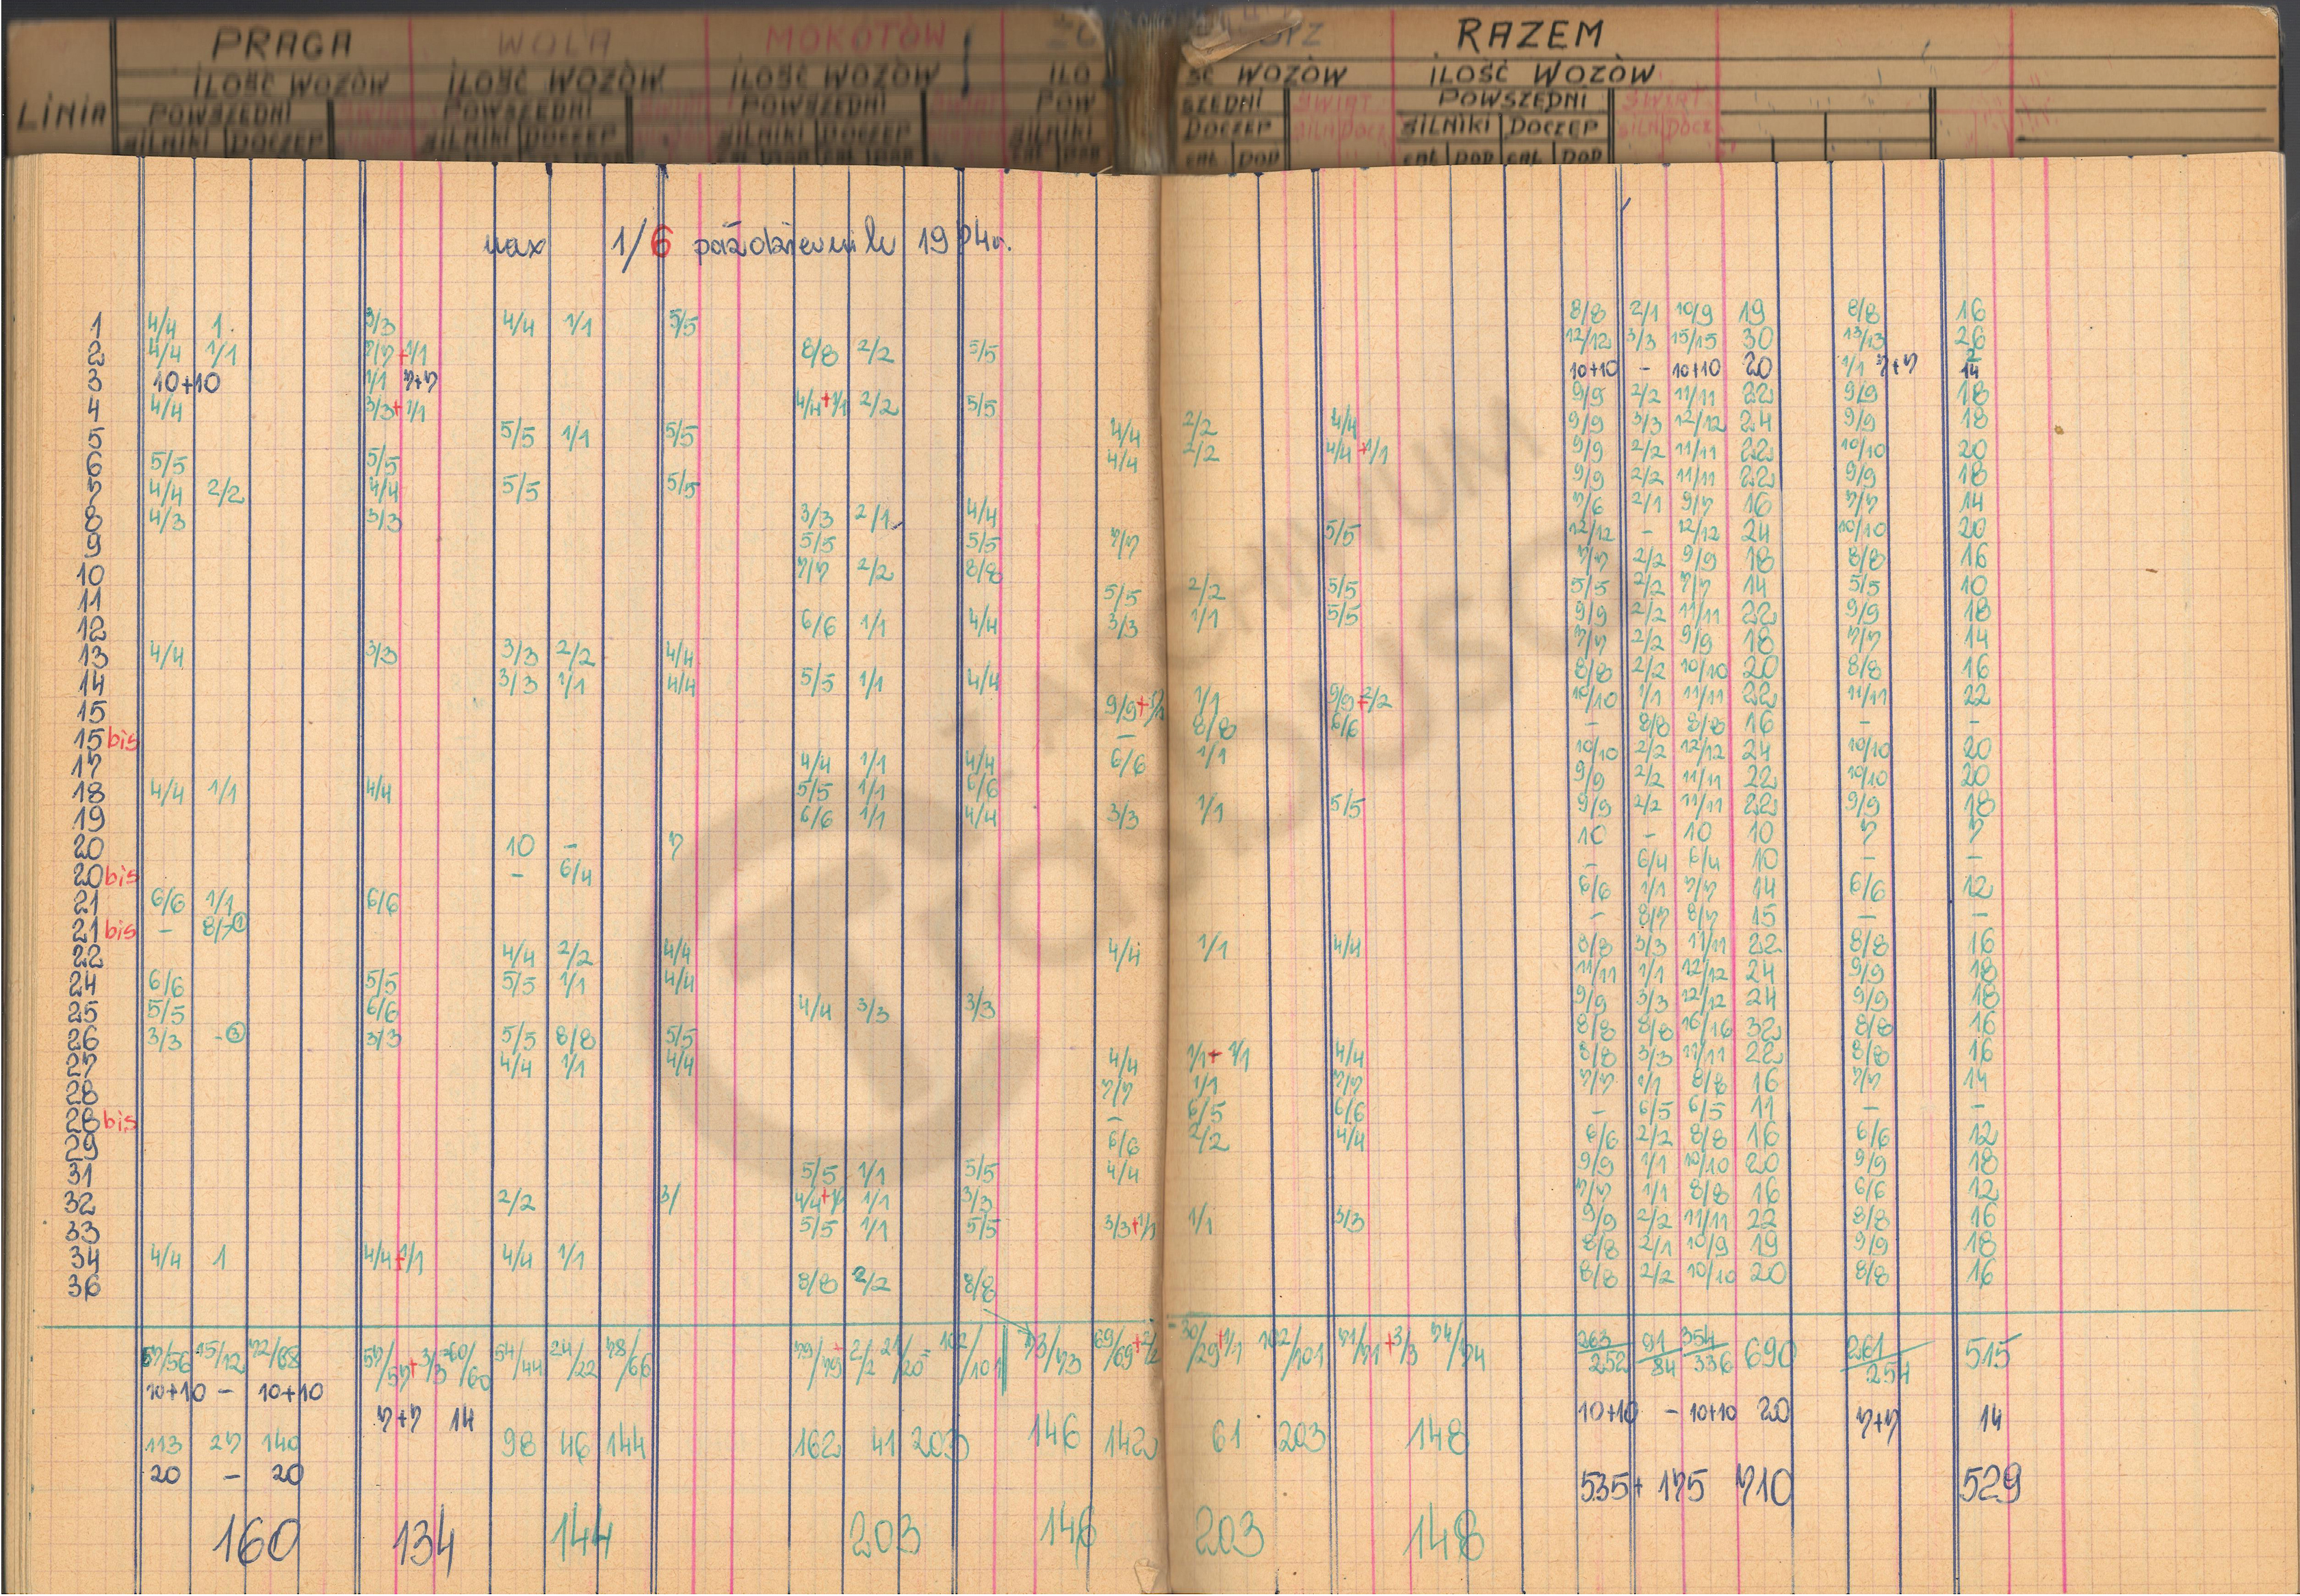 PRAGA WOLA MOKOTÓW RAZEM
ILOŚĆ WOZÓW ILOŚĆ WOZÓW ILOŚĆ WOZÓW ILO ŚĆ WOZÓW ILOŚĆ WOZÓW
LINIA POWSZEDNI POWSZEDNI POWSZEDNI POW SZEDNI ŚWIĄT POWSZEDNI ŚWIĄT
SILNIKI DOCZEP SILNIKI DOCZEP SILNIKI DOCZEP SILNIKI DOCZEP SILN DOCZ SILNIKI DOCZEP SILN DOCZ
POP POP POP
1/6 październik 1974r.
1 4/4 1 3/3 4/4 1/1 5/5 8/8 2/1 10/9 19 8/8 16
2 4/4 1/1 7/7+1/1 8/8 2/2 5/5 12/12 3/3 15/15 30 13/13 26
3 10+10 1/1 7+7 10+10 - 10+10 20 1/1 7+7 2 14
4 4/4 3/3+1/1 4/4+1/1 2/2 5/5 9/9 2/2 11/11 22 9/9 18
5 5/5 1/1 5/5 4/4 2/2 4/4 9/9 3/3 12/12 24 9/9 18
6 5/5 5/5 4/4 2/2 4/4+1/1 9/9 2/2 11/11 22 10/10 20
7 4/4 2/2 4/4 5/5 5/5 9/9 2/2 11/11 22 9/9 18
8 4/3 3/3 3/3 2/1 4/4 7/6 2/1 9/7 16 7/7 14
9 5/5 5/5 7/7 5/5 12/12 - 12/12 24 10/10 20
10 7/7 2/2 8/8 7/7 2/2 9/9 18 8/8 16
11 5/5 2/2 5/5 5/5 2/2 7/7 14 5/5 10
12 6/6 1/1 4/4 3/3 1/1 5/5 9/9 2/2 11/11 22 9/9 18
13 4/4 3/3 3/3 2/2 4/4 7/7 2/2 9/9 18 7/7 14
14 3/3 1/1 4/4 5/5 1/1 4/4 8/8 2/2 10/10 20 8/8 16
15 9/9+1/1 1/1 9/9+2/2 10/10 1/1 11/11 22 11/11 22
15 bis - 8/8 6/6 - 8/8 8/8 16 - -
17 4/4 1/1 4/4 6/6 1/1 10/10 2/2 12/12 24 10/10 20
18 4/4 1/1 4/4 5/5 1/1 6/6 9/9 2/2 11/11 22 10/10 20
19 6/6 1/1 4/4 3/3 1/1 5/5 9/9 2/2 11/11 22 9/9 18
20 10 - 7 10 - 10 10 7 7
20 bis - 6/4 - 6/4 6/4 10 - -
21 6/6 1/1 6/6 6/6 1/1 7/7 14 6/6 12
21 bis - 8/7 ① - 8/7 8/7 15 - -
22 4/4 2/2 4/4 4/4 1/1 4/4 8/8 3/3 11/11 22 8/8 16
24 6/6 5/5 5/5 1/1 4/4 11/11 1/1 12/12 24 9/9 18
25 5/5 6/6 4/4 3/3 3/3 9/9 3/3 12/12 24 9/9 18
26 3/3 - ③ 3/3 5/5 8/8 5/5 8/8 8/8 16/16 32 8/8 16
27 4/4 1/1 4/4 4/4 1/1+1/1 4/4 8/8 3/3 11/11 22 8/8 16
28 7/7 1/1 7/7 7/7 1/1 8/8 16 7/7 14
28 bis - 6/5 6/6 - 6/5 6/5 11 - -
29 6/6 2/2 4/4 6/6 2/2 8/8 16 6/6 12
31 5/5 1/1 5/5 4/4 9/9 1/1 10/10 20 9/9 18
32 2/2 3/ 4/4+1/1 1/1 3/3 7/7 1/1 8/8 16 6/6 12
33 5/5 1/1 5/5 3/3+1/1 1/1 3/3 9/9 2/2 11/11 22 8/8 16
34 4/4 1 4/4+1/1 4/4 1/1 8/8 2/1 10/9 19 9/9 18
36 8/8 2/2 8/8 8/8 2/2 10/10 20 8/8 16
57/56 15/12 72/68 57/57+3/3 60/60 54/44 24/22 78/66 79/79+2/2 21/20 102/101 73/73 69/69+2/2 30/29+1/1 102/101 71/71+3/3 74/74 263/252 91/84 354/336 690 261/254 515
10+10 - 10+10 7+7 14 10+10 - 10+10 20 7+7 14
113 27 140 98 46 144 162 41 203 146 142 61 203 148
20 - 20 535+175 710 529
160 134 144 203 146 203 148